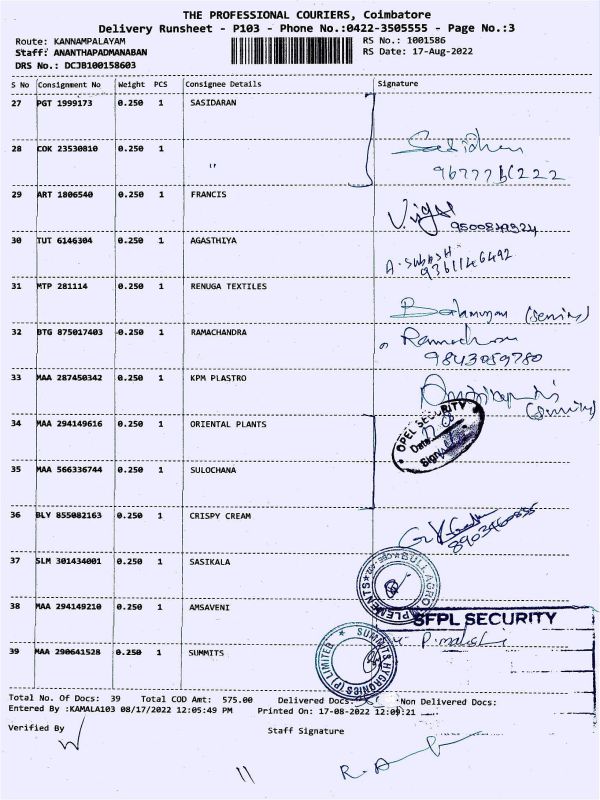 THE PROFESSIONAL COURIERS, Coimbatore
Delivery Runsheet - P103 - Phone No.:0422-3505555 - Page No.:3
Route: KANNAMPALAYAM RS No.: 1001586
Staff: ANANTHAPADMANABAN RS Date: 17-Aug-2022
DRS No.: DCJB100158603
S No Consignment No Weight PCS Consignee Details Signature
27 PGT 1999173 0.250 1 SASIDARAN
28 COK 23530810 0.250 1 "
Sasidharan
29 ART 1806540 0.250 1 FRANCIS
30 TUT 6146304 0.250 1 AGASTHIYA
A. SUBASH
9361146492
31 MTP 281114 0.250 1 RENUGA TEXTILES
(Security)
32 BTG 875017403 0.250 1 RAMACHANDRA
9843059780
33 MAA 287450342 0.250 1 KPM PLASTRO
(Security)
34 MAA 294149616 0.250 1 ORIENTAL PLANTS
OPEL SECURITY
Date
Sign
35 MAA 566336744 0.250 1 SULOCHANA
36 BLY 855082163 0.250 1 CRISPY CREAM
37 SLM 301434001 0.250 1 SASIKALA
38 MAA 294149210 0.250 1 AMSAVENI
SFPL SECURITY
39 MAA 290641528 0.250 1 SUMMITS
Total No. Of Docs: 39 Total COD Amt: 575.00 Delivered Docs: Non Delivered Docs:
Entered By :KAMALA103 08/17/2022 12:05:49 PM Printed On: 17-08-2022 12:09:21
Verified By Staff Signature